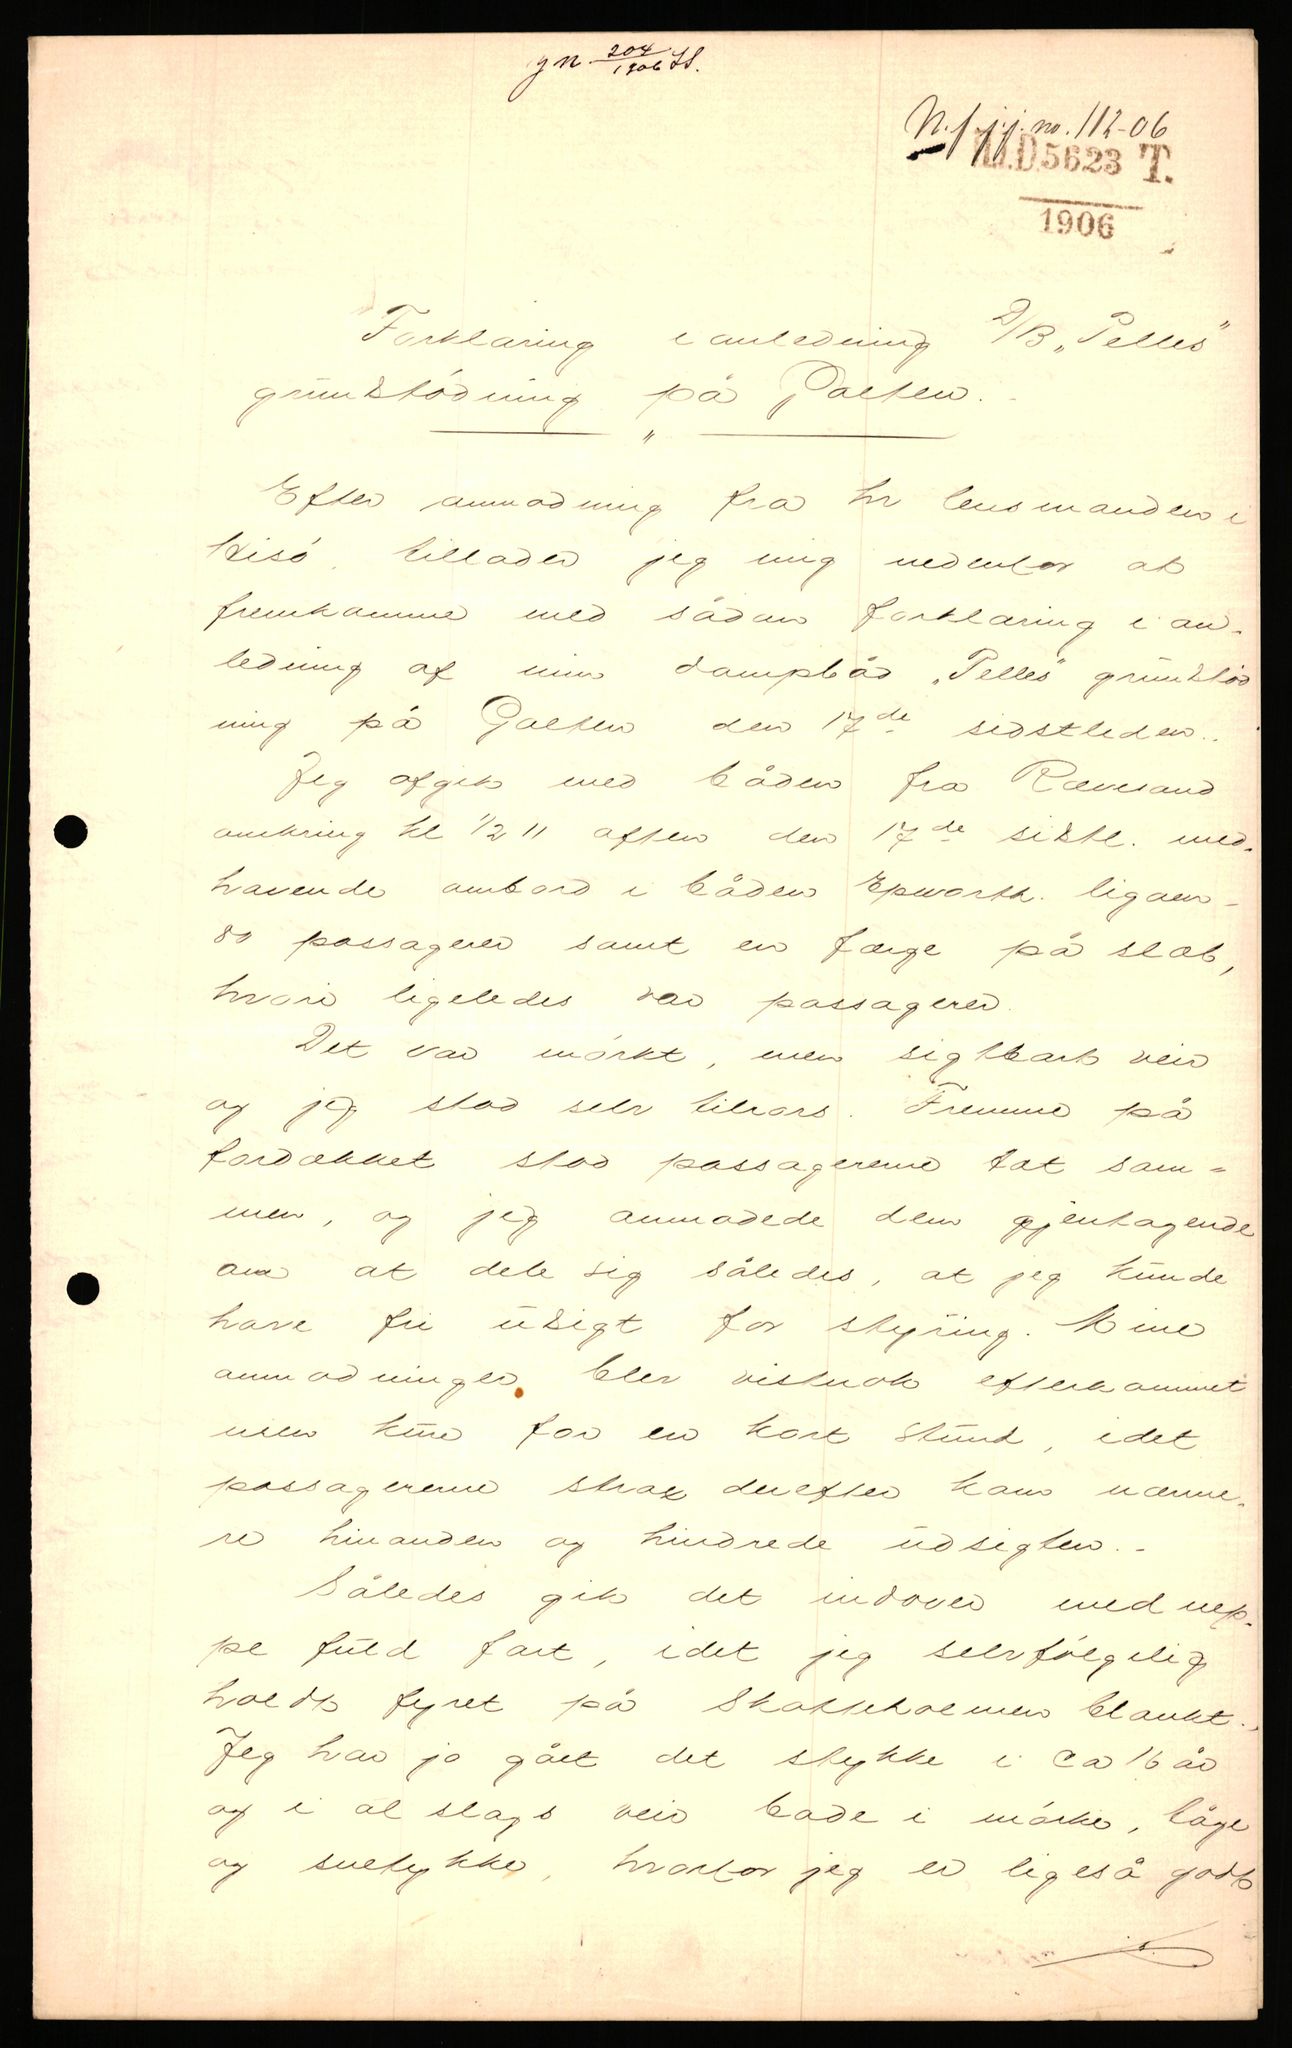 jn. 204/1906 LS.
N. f. j.j. no. 112-06
D. 5623 T.
1906
Forklaring i anledning D/B "Pelles"
grundstødning på Galten.
Efter anmodning fra hr lensmanden i
Hisö, tillader jeg mig nedenfor at
fremkomme med sådan forklaring i an-
ledning af min dampbåd "Pelles" grundstød
ning på Galten den 17de sidstleden.
Jeg afgik med båden fra Rævesand
omkring kl 1/2 11 aften den 17de sidstl. med-
havende ombord i båden Epworth. ligaen -
80 passagerer samt en færge på slæb,
hvori ligeledes var passagerer.
Det var mørkt, men sigtbart veir
og jeg stod selv tilrors. Fremme på
fordækket stod passagererne tæt sam-
men, og jeg anmodede dem gjentagende
om at dele sig således, at jeg kunde
have fri udsigt for styring. Mine
anmodninger blev vistnok efterkommet
men kun for en kort stund, idet
passagererne strax derefter kom nærme-
re hinanden og hindrede udsigten. -
Således gik det indover med nep-
pe fuld fart, idet jeg selvfølgelig
holdt fyret på Skotteholmen blankt.
Jeg har jo gået det stykke i ca 16 år
og i al slags veir både i mørke, tåge
og snetykke, hvorfor jeg er ligeså godt